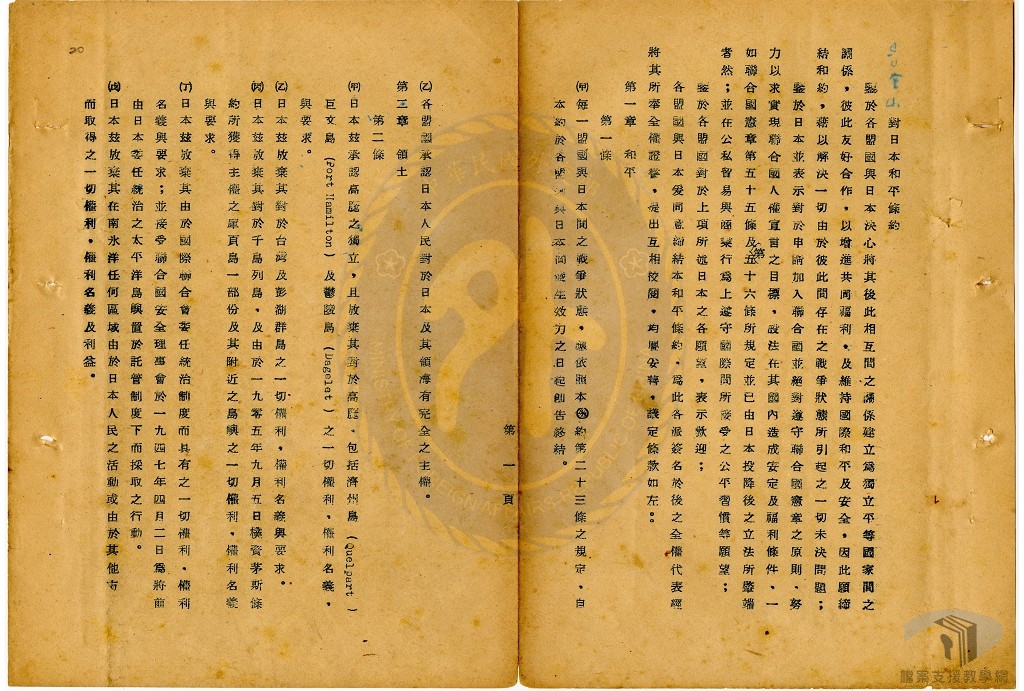 對日本和平條約
鑒於各盟國與日本決心將其後此相互間之關係建立為獨立平等國家間之
關係，彼此友好合作，以增進共同福利，及維持國際和平及安全，因此願締
結和約，藉以解決一切由於彼此間存在之戰爭狀態所引起之一切未決問題；
鑒於日本並表示對於申請加入聯合國並絕對遵守聯合國憲章之原則，努
力以求實現聯合國人權宣言之目標，設法在其國內造成安定及福利條件，一
如聯合國憲章第五十五條及第五十六條所規定並已由日本投降後之立法所肇端
者然；並在公私貿易與商業行為上遵守國際間所接受之公平習慣等願望；
鑒於各盟國對於上項所述日本之各願望，表示歡迎；
各盟國與日本爰同意締結本和平條約，為此各派簽名於後之全權代表經
將其所奉全權證書，提出互相校閱，均屬妥善，議定條款如左。
第一章　和平
第一條
(甲)每一盟國與日本間之戰爭狀態，應依照本約第二十三條之規定，自
本約於各盟國與日本間發生效力之日起卽告終結。
第一頁
(乙)各盟國承認日本人民對於日本及其領海有完全之主權。
第二章　領土
第二條
(甲)日本茲承認高麗之獨立，且放棄其對於高麗，包括濟州島（Quelpart）
巨文島（Port Hamilton）及鬱陵島（Dagelet）之一切權利，權利名義，
與要求。
(乙)日本茲放棄其對於台灣及彭湖群島之一切權利，權利名義與要求。
(丙)日本茲放棄其對於千島列島，及由於一九零五年九月五日樸資茅斯條
約所獲得主權之庫頁島一部份及其附近之島嶼之一切權利，權利名義
與要求。
(丁)日本茲放棄其由於國際聯合會委任統治制度而具有之一切權利，權利
名義與要求；並接受聯合國安全理事會於一九四七年四月二日為將前
由日本委任統治之太平洋島嶼置於託管制度下而採取之行動。
(戊)日本茲放棄其在南氷洋任何區域由於日本人民之活動或由於其他方
而取得之一切權利，權利名義及利益。
檔案支援教學網